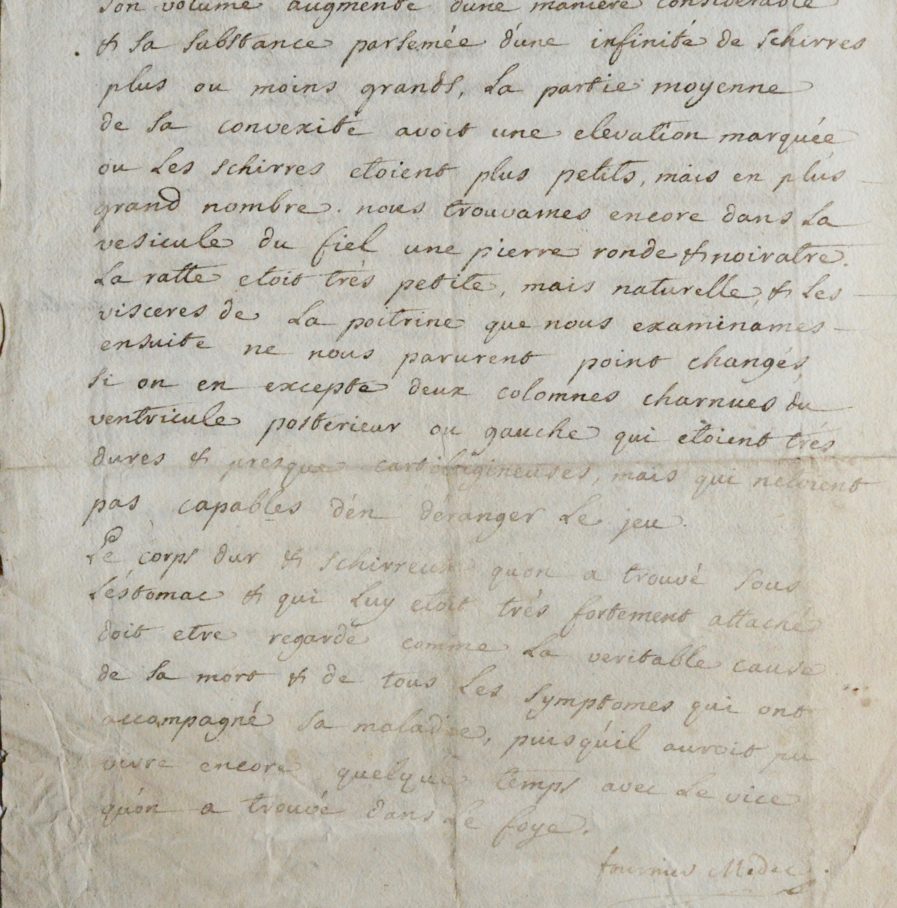 son volume augmenté d'une maniere considerable
& sa substance parsemée d'une infinité de schirres
plus ou moins grands, La partie moyenne
de sa convexité avoit une elevation marquée
ou Les schirres etoient plus petits, mais en plus
grand nombre. nous trouvames encore dans La
vesicule du fiel une pierre ronde & noiratre.
La ratte etoit trés petite, mais naturelle, & Les
visceres de La poitrine que nous examinames
ensuite ne nous parurent point changés
si on en excepte deux colomnes charnues du
ventricule posterieur ou gauche qui etoient trés
dures & presque cartilagineuses, mais qui netoient
pas capables d'en déranger Le jeu.
Le corps dur & schirreux quon a trouvé sous
L'estomac & qui Luy etoit trés fortement attaché
doit etre regardé comme La veritable cause
de sa mort & de tous Les symptomes qui ont
accompagné sa maladie, puisqu'il auroit pu
vivre encore quelque temps avec Le vice
qu'on a trouvé dans Le foye.
fournier Medec.